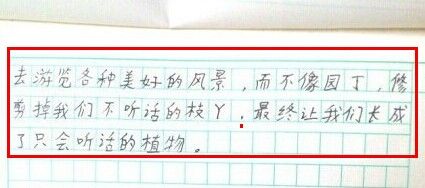 去游览各种美好的风景，而不像园丁，修
剪掉我们不听话的枝丫，最终让我们长成
了只会听话的植物。